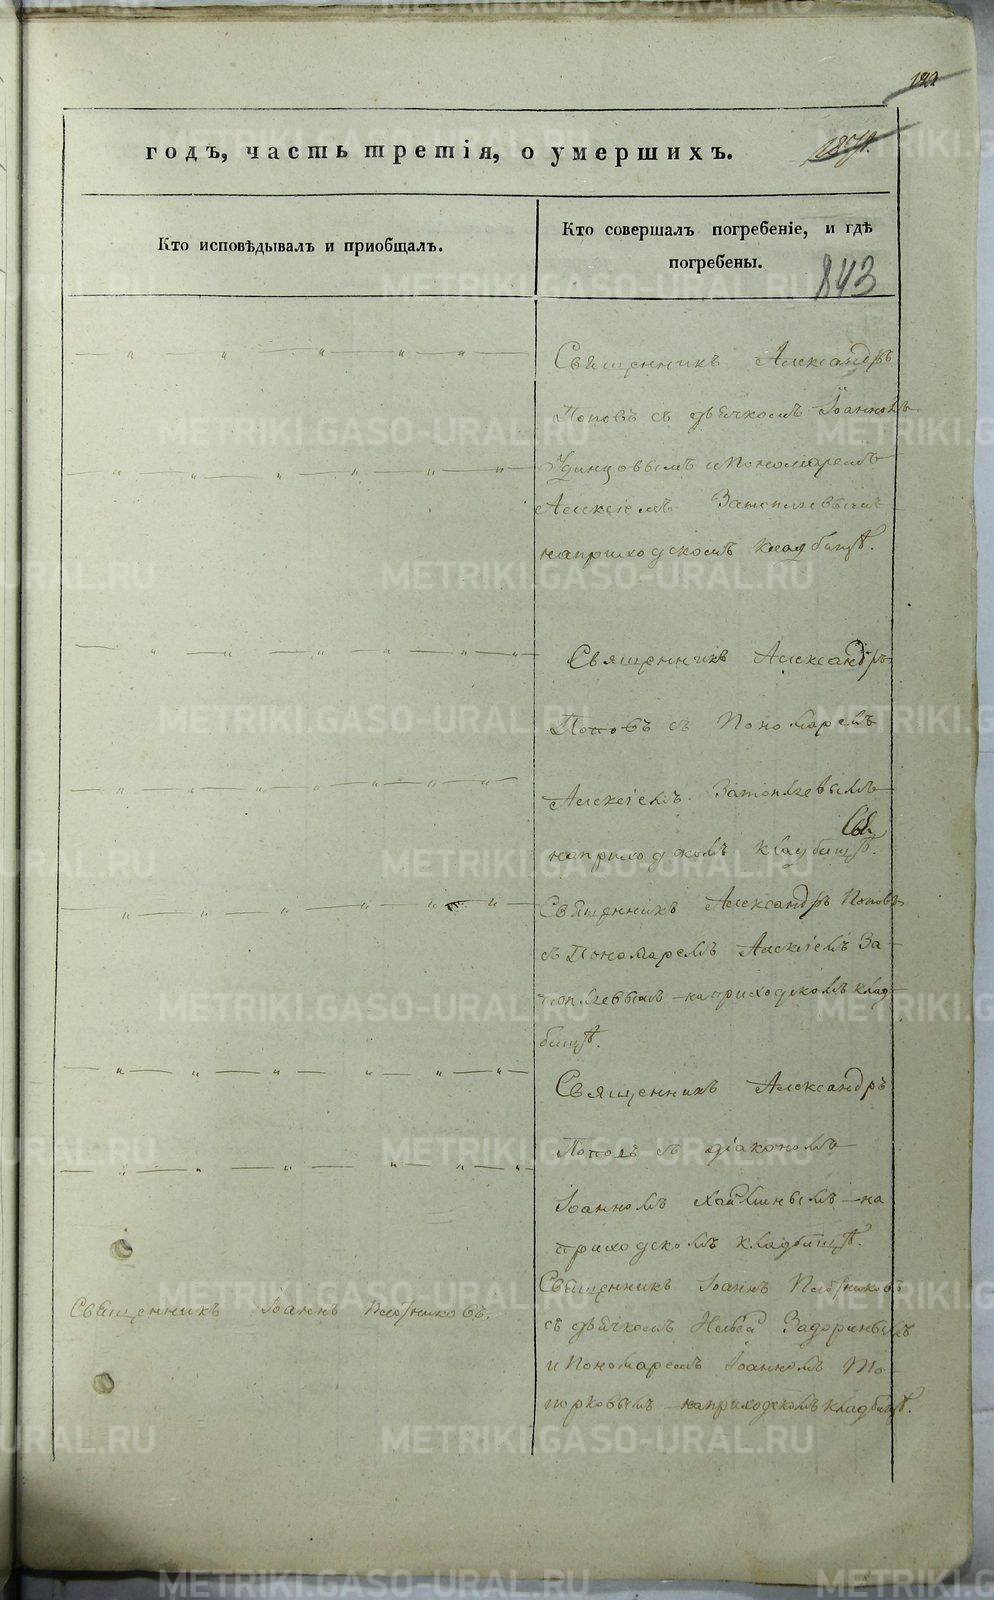 122
годъ, часть третія, о умершихъ.
Кто исповѣдывалъ и приобщалъ.
Кто совершалъ погребеніе, и гдѣ
погребены.
843
Священникъ Александръ
Поповъ съ дьячкомъ Іоанномъ
Удинцовымъ и Пономаремъ
Алексіемъ Затопляевымъ
на приходскомъ кладбищѣ.
Священникъ Александръ
Поповъ съ Пономаремъ
Алексіемъ Затопляевымъ
на приходскомъ кладбищѣ.
Священникъ Александръ Поповъ
съ Пономаремъ Алексіемъ За-
топляевымъ на приходскомъ клад-
бищѣ.
Священникъ Александръ
Поповъ съ діакономъ
Іоанномъ на
приходскомъ кладбищѣ.
Священникъ Іоаннъ
Священникъ Іоаннъ
съ дьячкомъ Задоринымъ
и Пономаремъ Іоанномъ То-
порковымъ на приходскомъ кладбищѣ.
METRIKI.GASO-URAL.RU